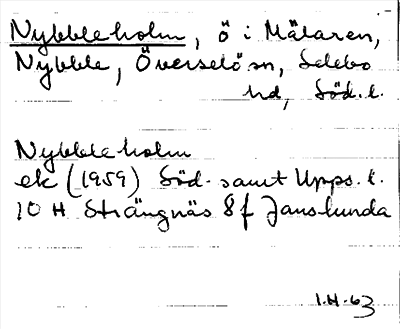 Nybbleholm, ö i Mälaren,
Nybble, Överselö sn, Selebo
hd, Söd. l.
Nybbleholm
ek (1959) Söd. samt Upps. l.
10 H Strängnäs 8 f Janslunda
I.H. 63